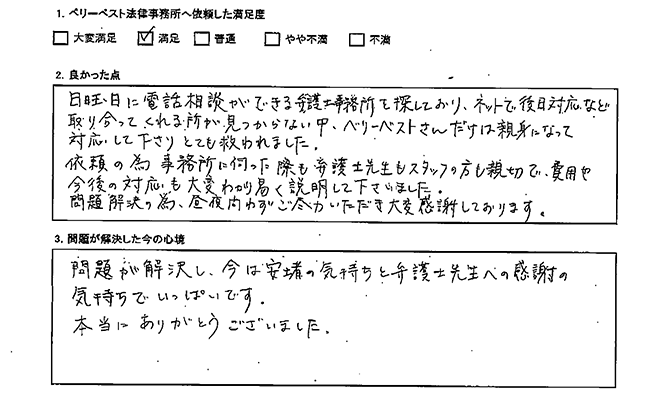 1. ベリーベスト法律事務所へ依頼した満足度
□ 大変満足 ☑ 満足 □ 普通 □ やや不満 □ 不満
2. 良かった点
日曜日に電話相談ができる弁護士事務所を探しており、ネットで後日対応など
取り合ってくれる所が見つからない中、ベリーベストさんだけは親身になって
対応して下さりとても救われました。
依頼の為事務所に伺った際も弁護士先生もスタッフの方も親切で、費用や
今後の対応も大変わかり易く説明して下さいました。
問題解決の為、昼夜問わずご尽力いただき大変感謝しております。
3. 問題が解決した今の心境
問題が解決し、今は安堵の気持ちと弁護士先生への感謝の
気持ちでいっぱいです。
本当にありがとうございました。